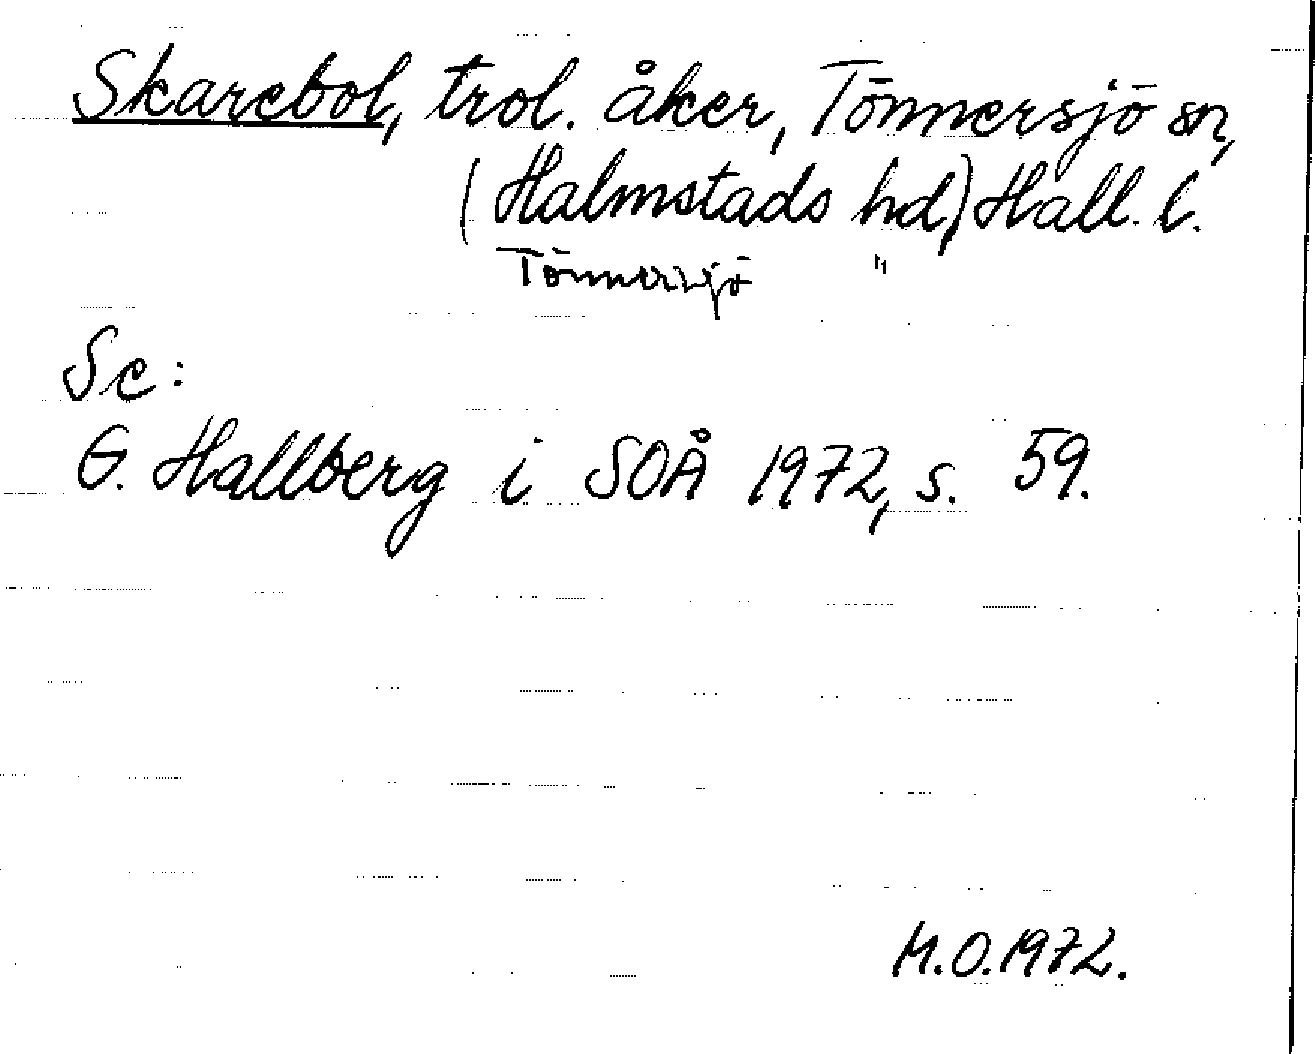 Skarebol, trol. åker, Tönnersjö sn,
(Halmstads hd,) Hall. l.
Tönnersjö "
Se:
G. Hallberg i SOÅ 1972, s. 59.
M.O. 1972.